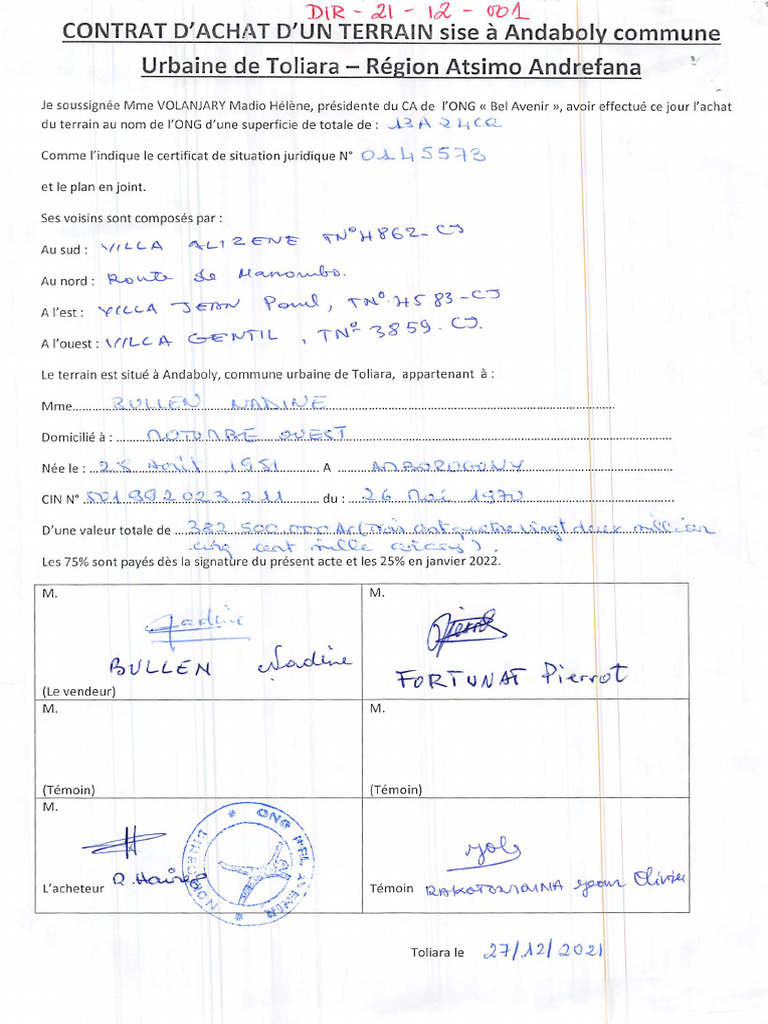 DIR - 21 - 12 - 001
CONTRAT D'ACHAT D'UN TERRAIN sise à Andaboly commune
Urbaine de Toliara – Région Atsimo Andrefana
Je soussignée Mme VOLANJARY Madio Hélène, présidente du CA de l'ONG « Bel Avenir », avoir effectué ce jour l'achat
du terrain au nom de l'ONG d'une superficie de totale de : 13A 24CA
Comme l'indique le certificat de situation juridique N° 0145573
et le plan en joint.
Ses voisins sont composés par :
Au sud : VILLA ALIZENE TN°4862-CJ
Au nord : Route de Manombo.
A l'est : VILLA JEAN Paul, TN°.4583-CJ
A l'ouest : VILLA GENTIL, TN° 3859-CJ.
Le terrain est situé à Andaboly, commune urbaine de Toliara, appartenant à :
Mme BULLEN NADINE
Domicilié à : MOTOMBE OUEST
Née le : 28 Août 1951 A
CIN N° 501992023211 du : 26 Mai 1970
D'une valeur totale de 382 500.000 Ar (Trois cent quatre vingt deux million
cinq cent mille ariary).
Les 75% sont payés dès la signature du présent acte et les 25% en janvier 2022.
M.
Nadine
BULLEN Nadine
(Le vendeur)
M.
Pierrot
FORTUNAT Pierrot
M.
(Témoin)
M.
(Témoin)
M.
L'acheteur
ONG BEL AVENIR
DIRECTION
Témoin RAKOTOMAINA Jean Olivier
Toliara le 27/12/2021